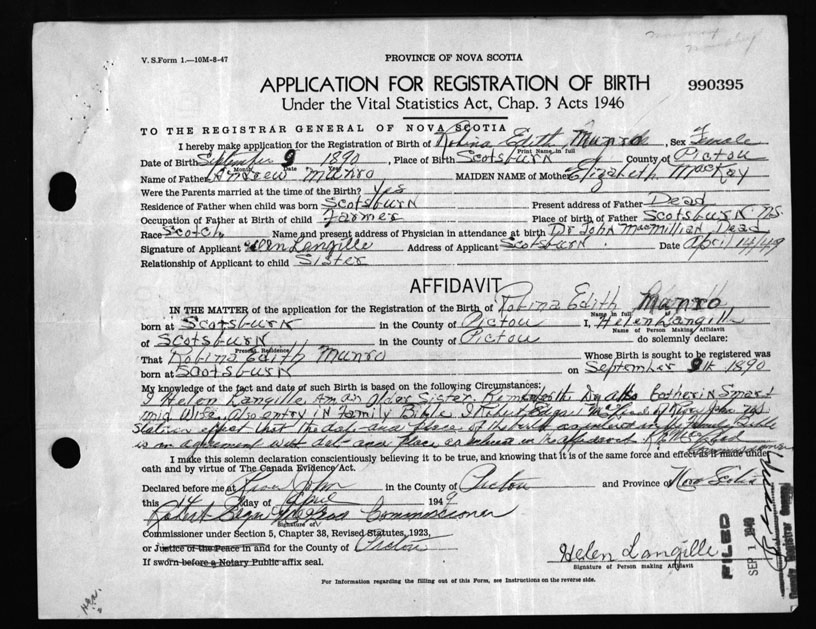 V. S. Form 1.—10M-8-47
PROVINCE OF NOVA SCOTIA
APPLICATION FOR REGISTRATION OF BIRTH
990395
Under the Vital Statistics Act, Chap. 3 Acts 1946
TO THE REGISTRAR GENERAL OF NOVA SCOTIA
I hereby make application for the Registration of Birth of Robina Edith Munro, Sex Female
Print Name in full
Date of Birth September 9 1890, Place of Birth Scotsburn County of Pictou
Month Date
Name of Father Andrew Munro MAIDEN NAME of Mother Elizabeth MacKay
Were the Parents married at the time of the Birth? Yes
Residence of Father when child was born Scotsburn Present address of Father Dead
Occupation of Father at Birth of child Farmer Place of birth of Father Scotsburn N.S.
Race Scotch Name and present address of Physician in attendance at birth Dr John MacMillian Dead
Signature of Applicant Helen Langille Address of Applicant Scotsburn. Date April 14/49
Relationship of Applicant to child Sister
AFFIDAVIT
IN THE MATTER of the application for the Registration of the Birth of Robina Edith Munro
Name in full
born at Scotsburn in the County of Pictou I, Helen Langille
Name of Person Making Affidavit
of Scotsburn in the County of Pictou do solemnly declare:
Present Residence
That Robina Edith Munro Whose Birth is sought to be registered was
born at Scotsburn on September 9th 1890
My knowledge of the fact and date of such Birth is based on the following Circumstances:
I Helen Langille Am an Older Sister Remember the Day
Mid Wife, also entry in Family Bible. I Robert
effect that the date and place of the birth as entered in the Family Bible
is in agreement with date and place as in the affidavit
I make this solemn declaration conscientiously believing it to be true, and knowing that it is of the same force and effect as if made under
oath and by virtue of The Canada Evidence Act.
Declared before me at River John in the County of Pictou and Province of Nova Scotia
this 14 day of April 1949
Robert Commissioner
Signature of
Commissioner under Section 5, Chapter 38, Revised Statutes, 1923,
or Justice of the Peace in and for the County of Pictou
If sworn before a Notary Public affix seal.
Helen Langille
Signature of Person making Affidavit
For Information regarding the filling out of this Form, see Instructions on the reverse side.
FILED
SEP 1 1949